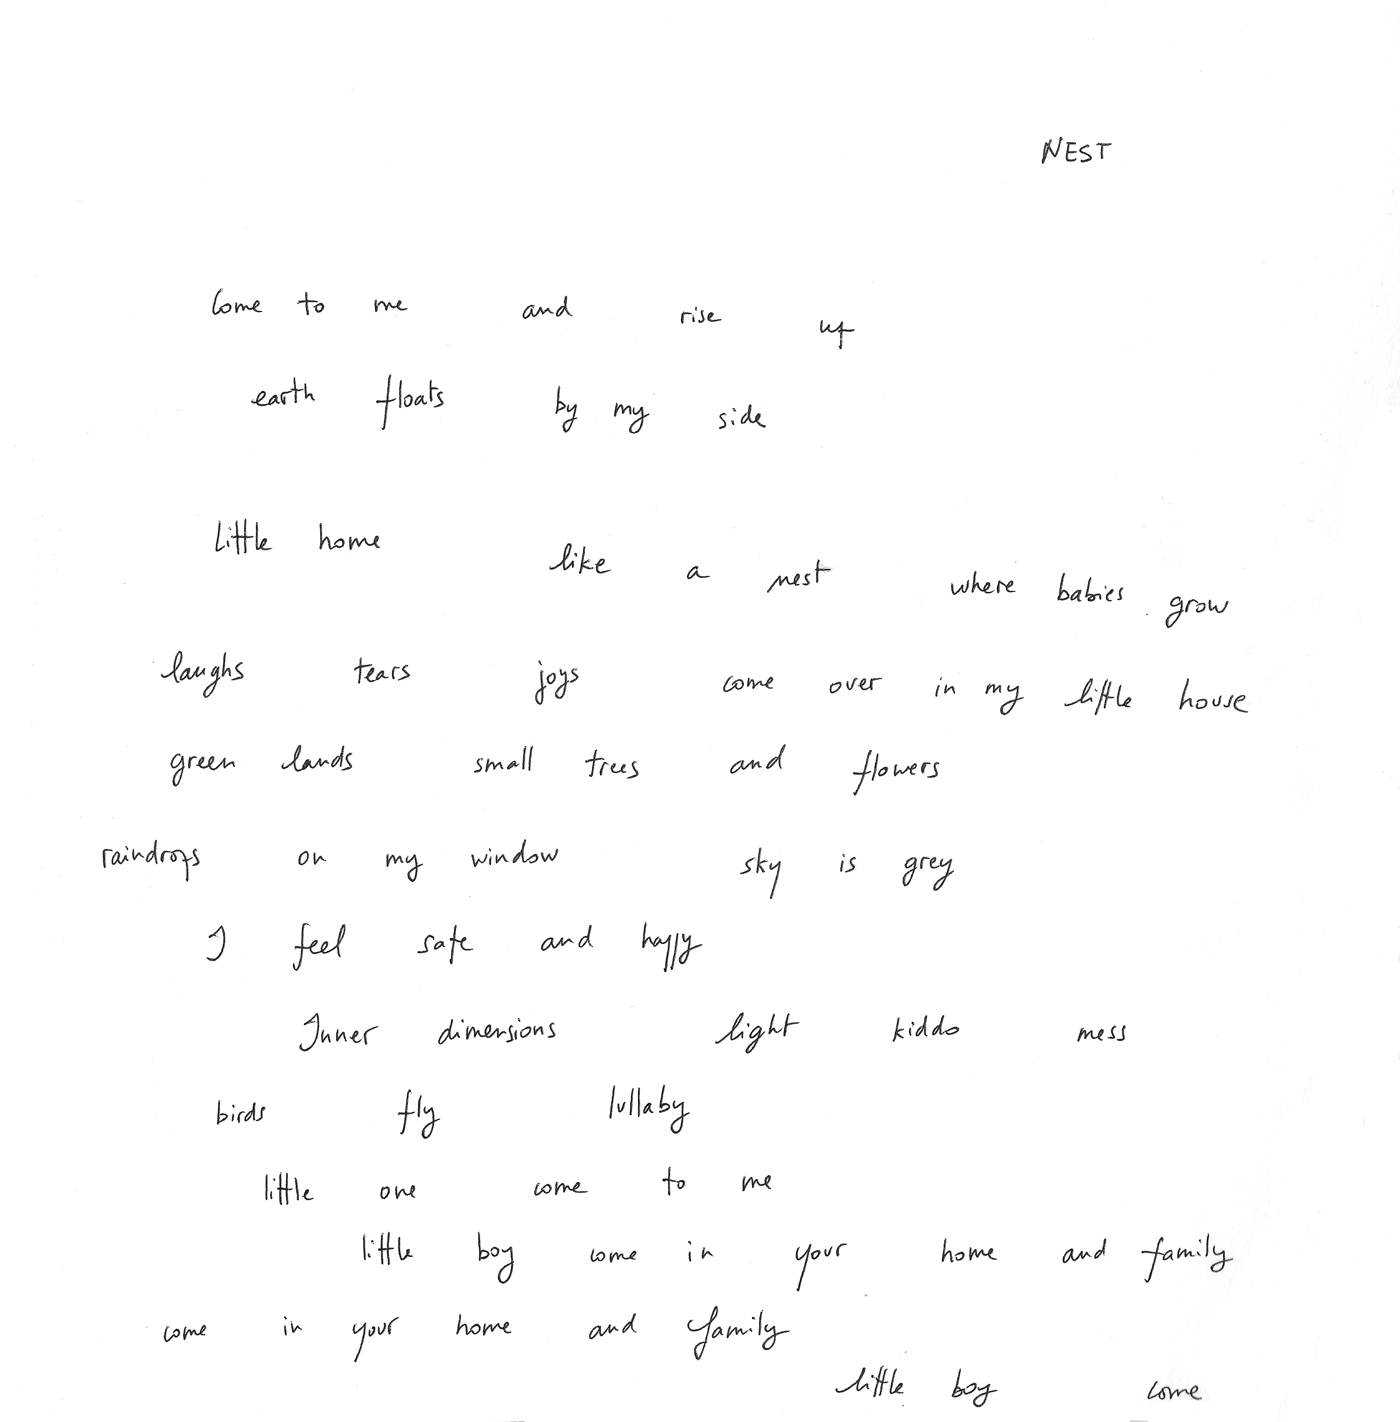 NEST
Come to me and rise up
earth floats by my side
Little home like a nest where babies grow
laughs tears joys come over in my little house
green lands small trees and flowers
raindrops on my window sky is grey
I feel safe and happy
Inner dimensions light kiddo mess
birds fly lullaby
little one come to me
little boy come in your home and family
come in your home and family
little boy come